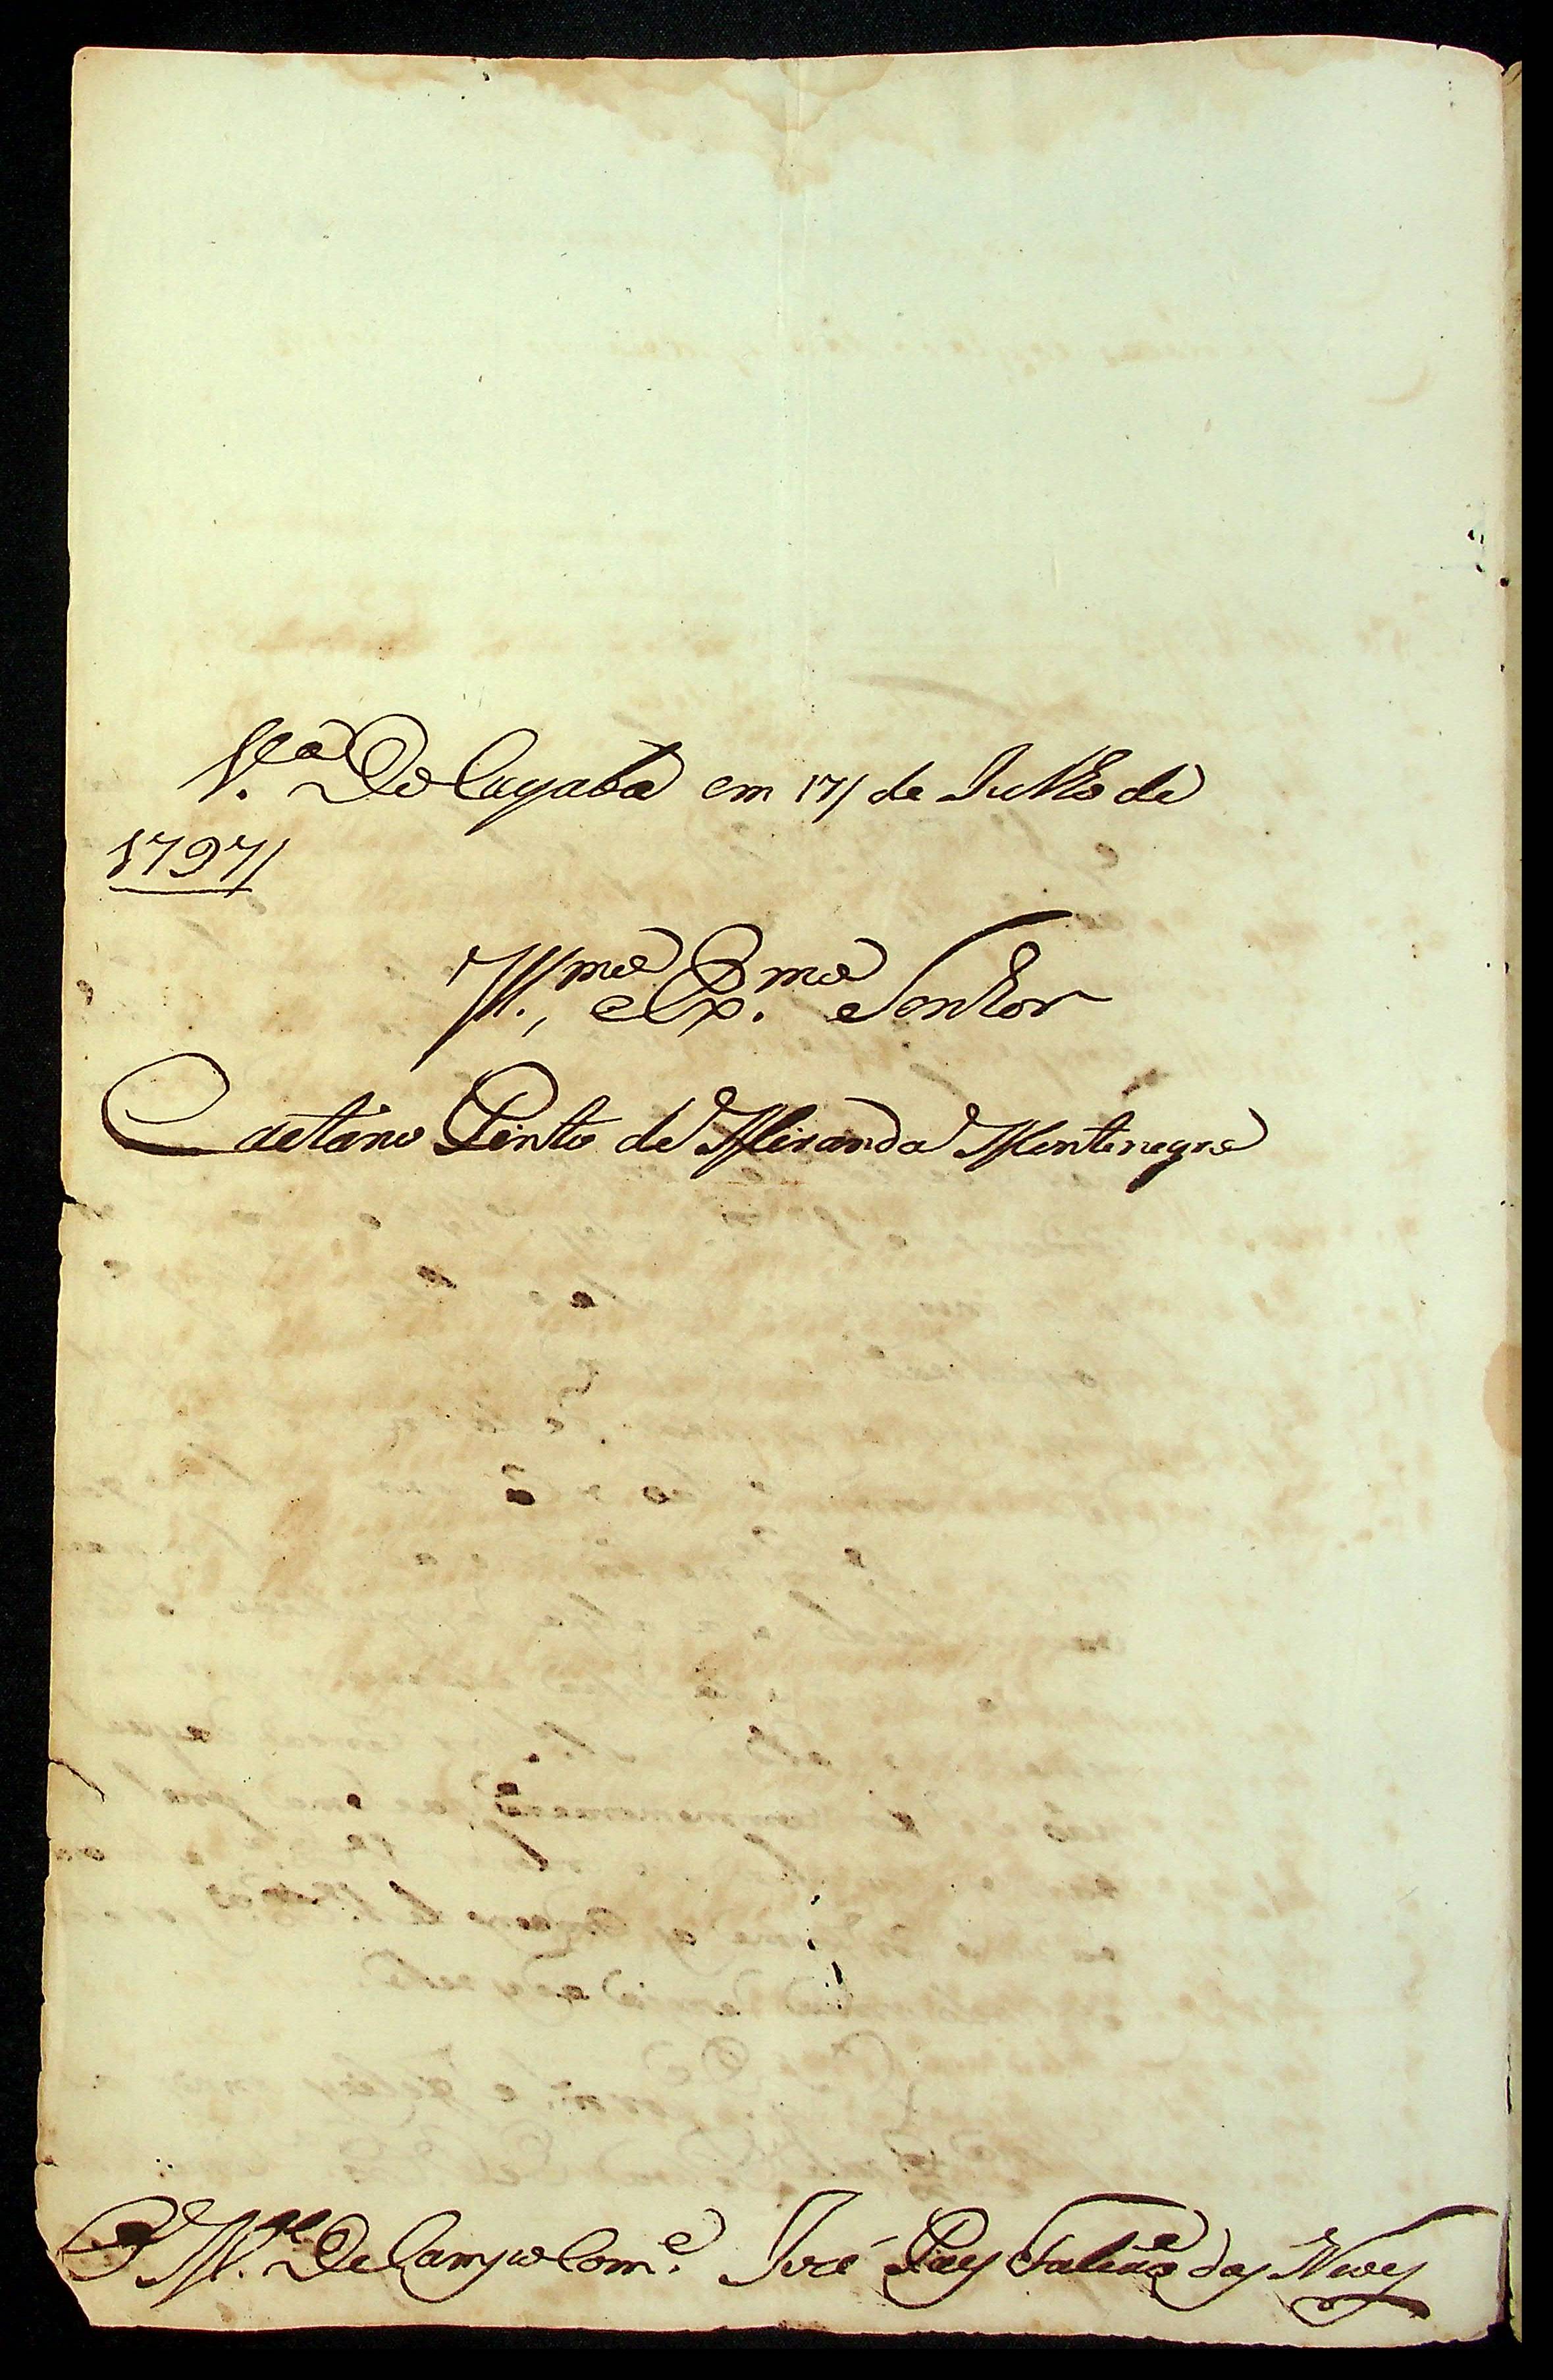 V.ª Do Cuyabá em 17 de Julho de
1797
Ill.mo, e Ex.mo Senhor
Caetano Pinto de Miranda Montenegro
O M.e De Campo Com.e José Paes Falcão das Neves